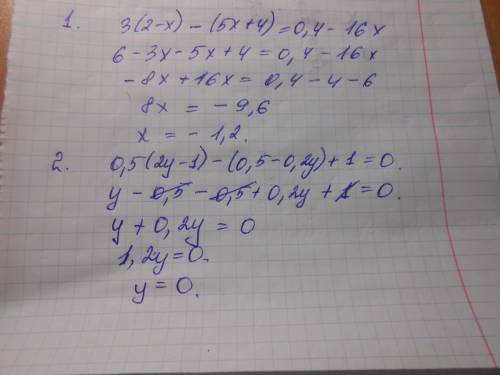 1. 3(2-x) - (5x+4) = 0,4 - 16x
6 - 3x - 5x + 4 = 0,4 - 16x
- 8x + 16x = 0,4 - 4 - 6
8x = - 9,6
x = - 1,2.
2. 0,5(2y-1) - (0,5-0,2y) + 1 = 0.
y - 0,5 - 0,5 + 0,2y + 1 = 0.
y + 0,2y = 0
1,2y = 0.
y = 0.